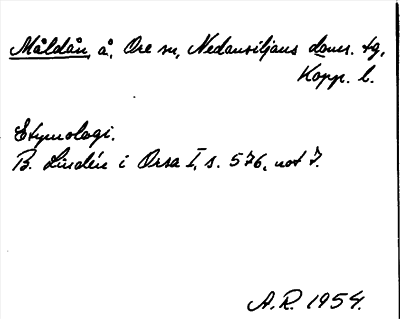 Måldån, å, Ore sn, Nedansiljans doms. tg,
Kopp. l.
Etymologi.
B. Lindén i Orsa I, s. 576, not 7.
A.R. 1954.